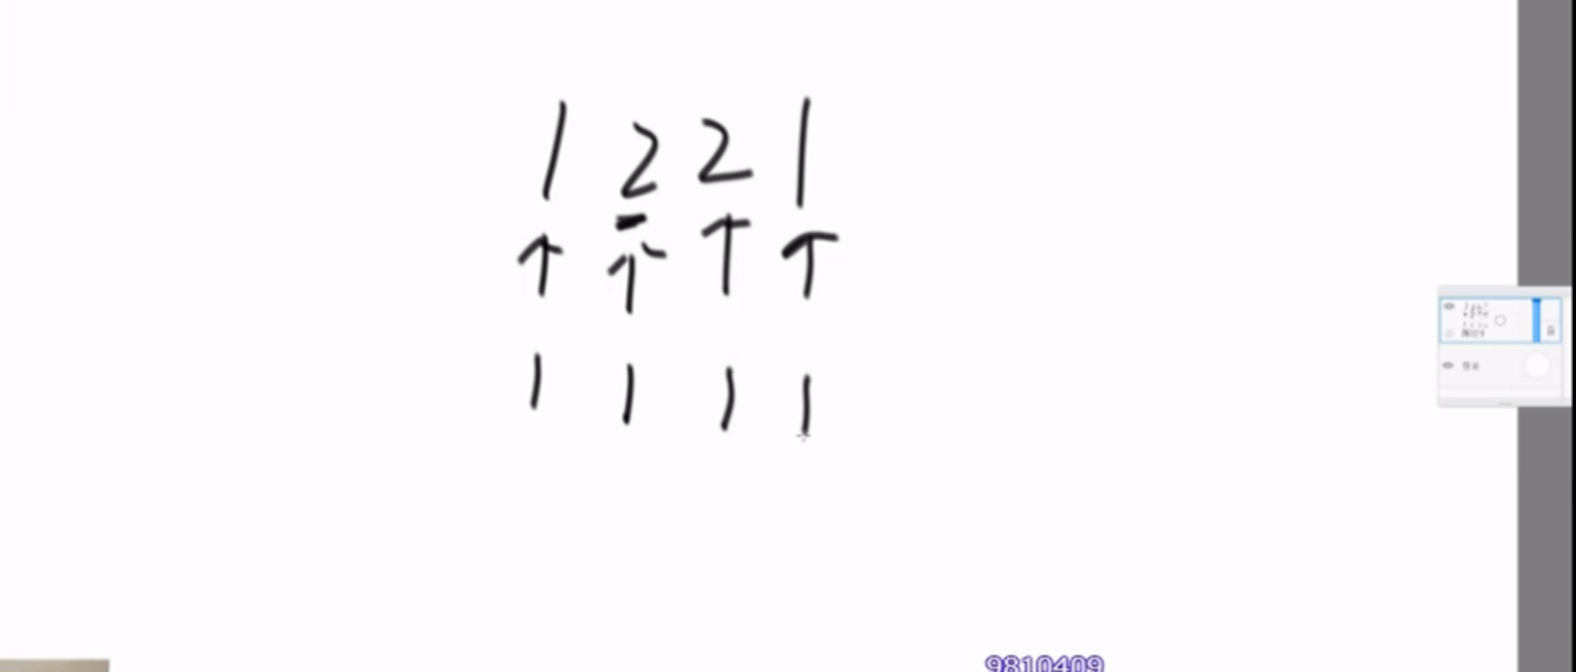 1 2 2 1
↑ ↑ ↑ ↑
1 1 1 1
9810409